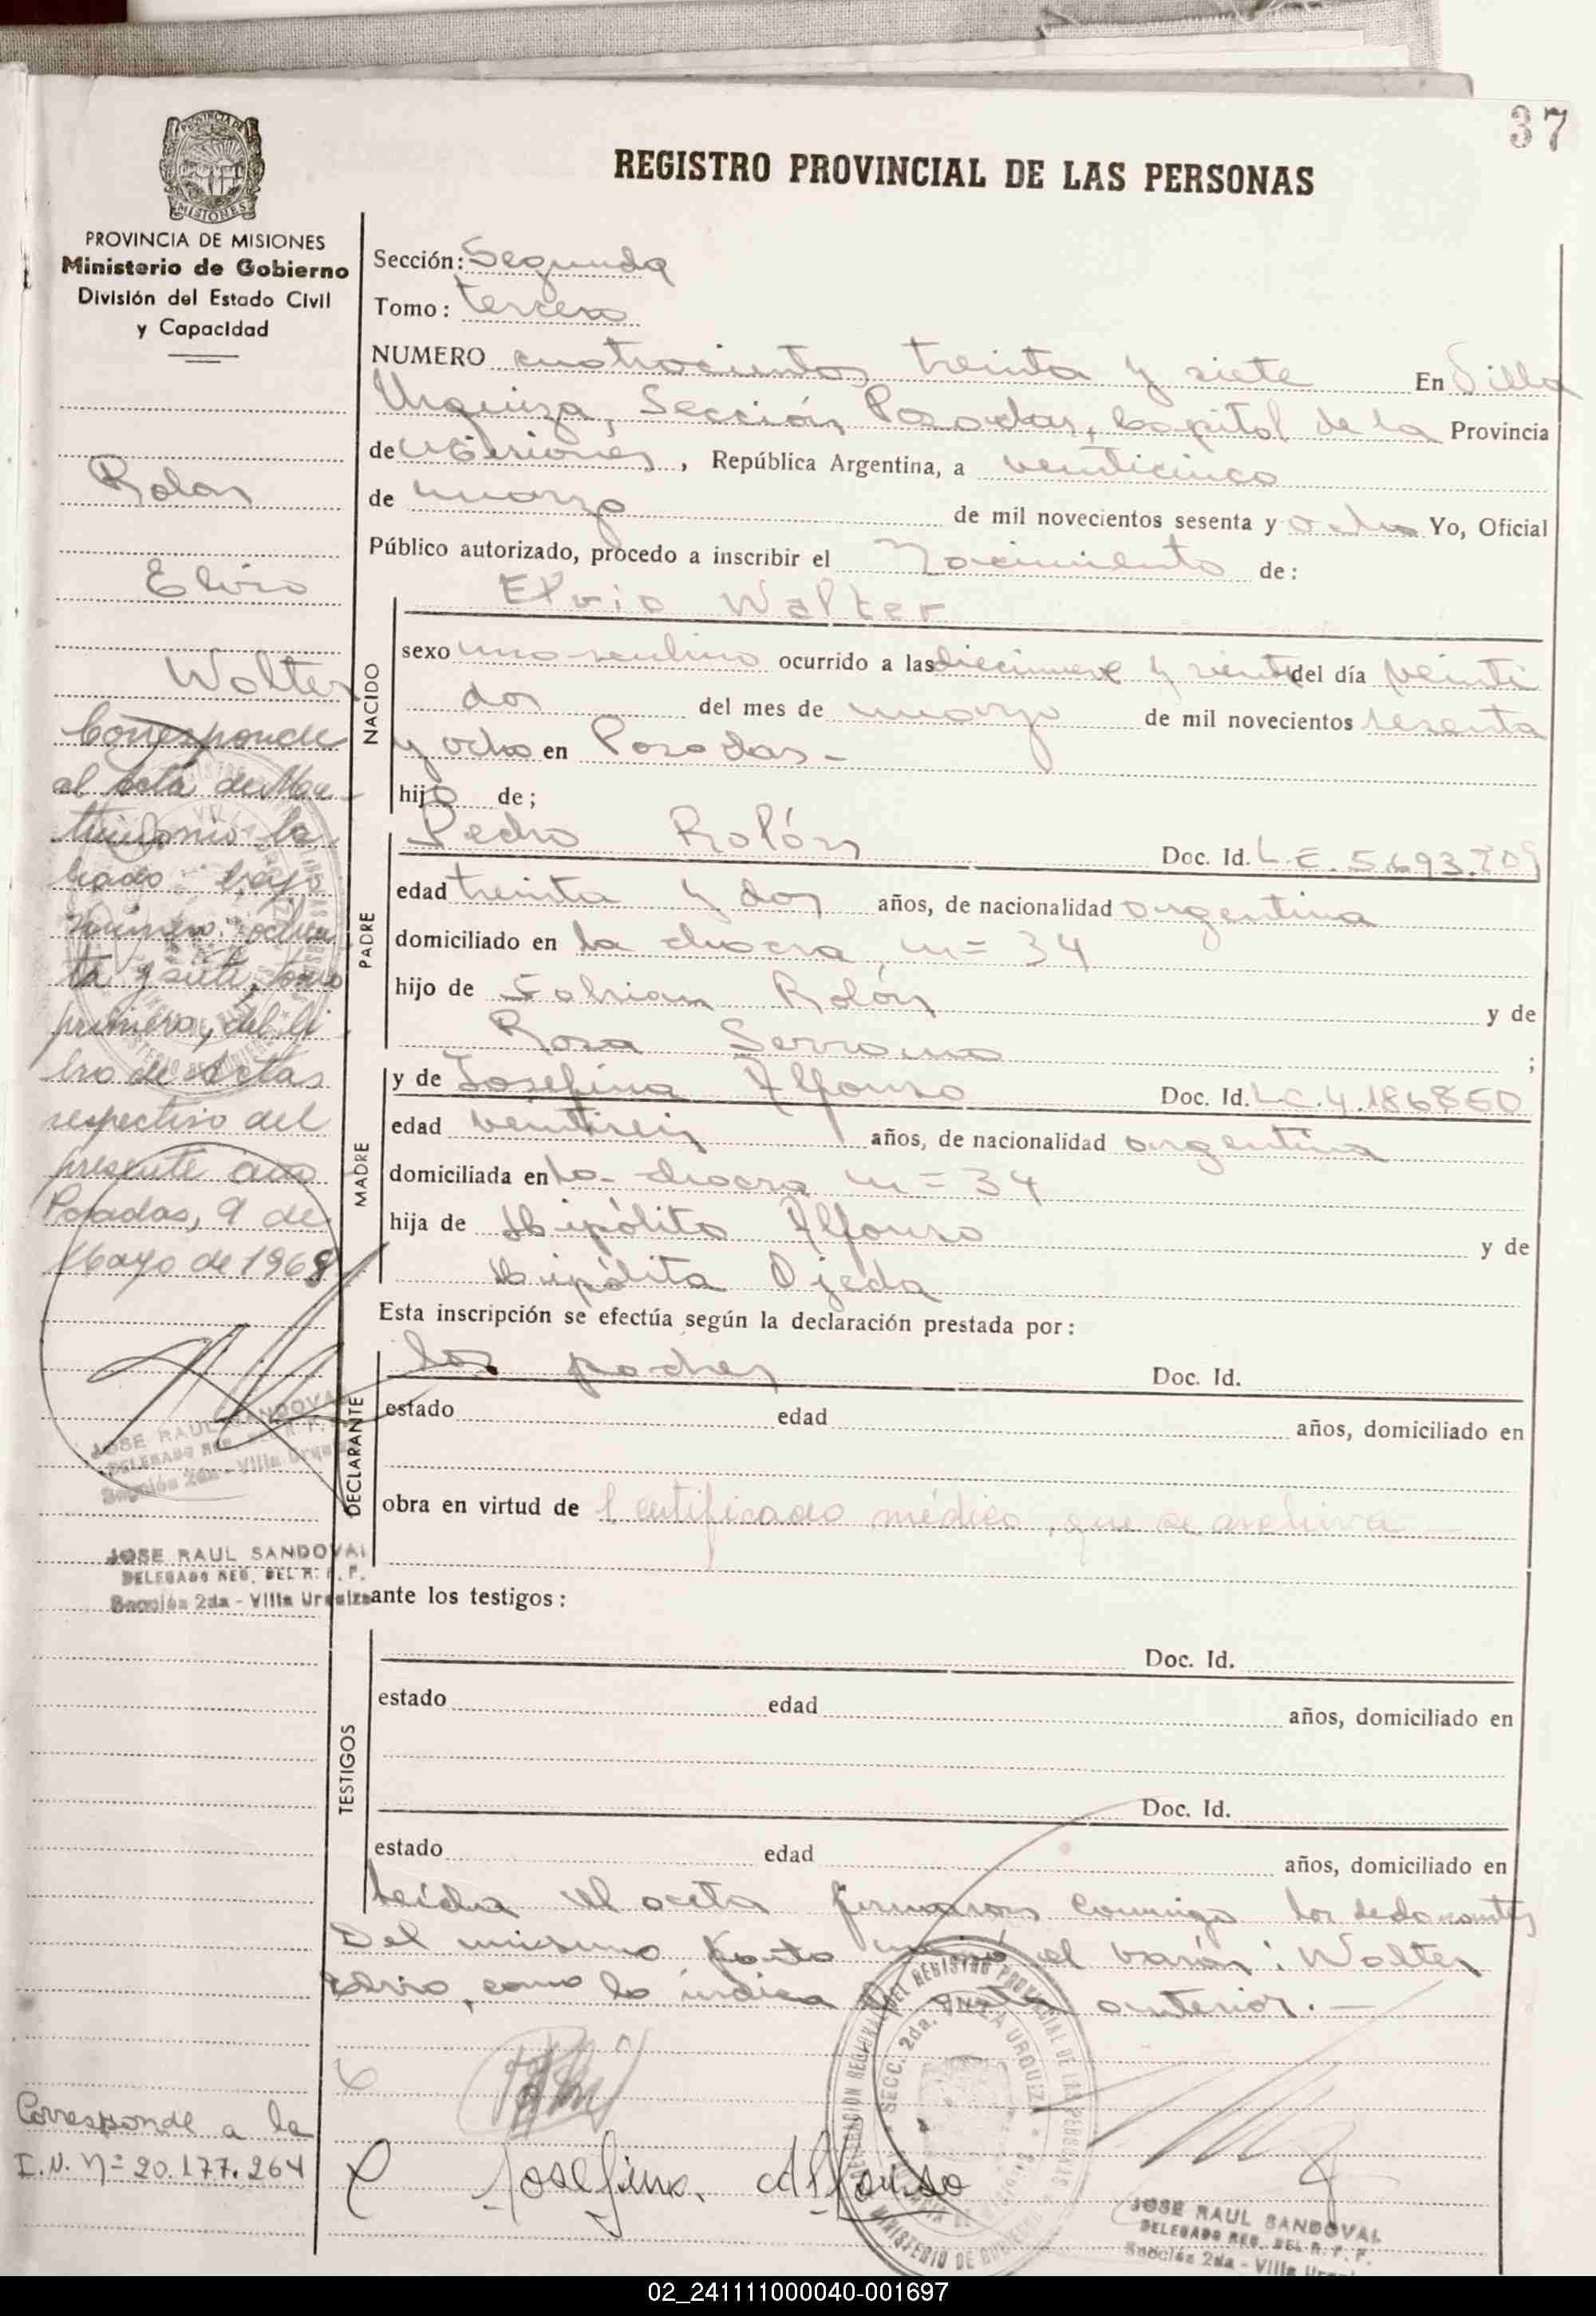 37
REGISTRO PROVINCIAL DE LAS PERSONAS
PROVINCIA DE MISIONES
Ministerio de Gobierno
División del Estado Civil
y Capacidad
Rolon
Elvio
Walter
Corresponde
al acta de Ma-
trimonio la
brado bajo
número ochen
ta y siete, tomo
primero, del li
bro de Actas
respectivo del
presente año
Posadas, 9 de
Mayo de 1968
JOSE RAUL SANDOVAL
DELEGADO REG. DEL R. P. P.
Sección 2da - Villa Urquiza
JOSE RAUL SANDOVAL
DELEGADO REG. DEL R. P. P.
Sección 2da - Villa Urquiza
Corresponde a la
I.N. Nº 20.177.264
Sección: Segunda
Tomo: tercero
NUMERO cuatrocientos treinta y siete En Villa
Urquiza, Sección Posadas, Capital de la Provincia
de Misiones, República Argentina, a veinticinco
de marzo de mil novecientos sesenta y ocho Yo, Oficial
Público autorizado, procedo a inscribir el Nacimiento de:
NACIDO
Elvio Walter
sexo masculino ocurrido a las diecinueve y veinte del día veinti
dos del mes de marzo de mil novecientos sesenta
y ocho en Posadas -
hijo de;
PADRE
Pedro Rolón Doc. Id. L.E. 5.693.209
edad treinta y dos años, de nacionalidad argentina
domiciliado en la chacra nº 34
hijo de Fabian Rolón y de
Rosa Serrano ;
MADRE
y de Josefina Alfonso Doc. Id. L.C. 4.186860
edad veintiseis años, de nacionalidad argentina
domiciliada en la chacra nº 34
hija de Hipólito Alfonso y de
Hipólita Ojeda
Esta inscripción se efectúa según la declaración prestada por:
DECLARANTE
los padres Doc. Id.
estado edad años, domiciliado en
obra en virtud de Certificado médico, que se archiva -
ante los testigos:
TESTIGOS
Doc. Id.
estado edad años, domiciliado en
Doc. Id.
estado edad años, domiciliado en
Leída el acta firmaron conmigo los declarantes
Del mismo parto nació el varón: Walter
Elvio, como lo indica el acta anterior. -
Josefina Alfonso
SECC. 2da. VILLA URQUIZA
JOSE RAUL SANDOVAL
DELEGADO REG. DEL R. P. P.
Sección 2da - Villa
02_241111000040-001697